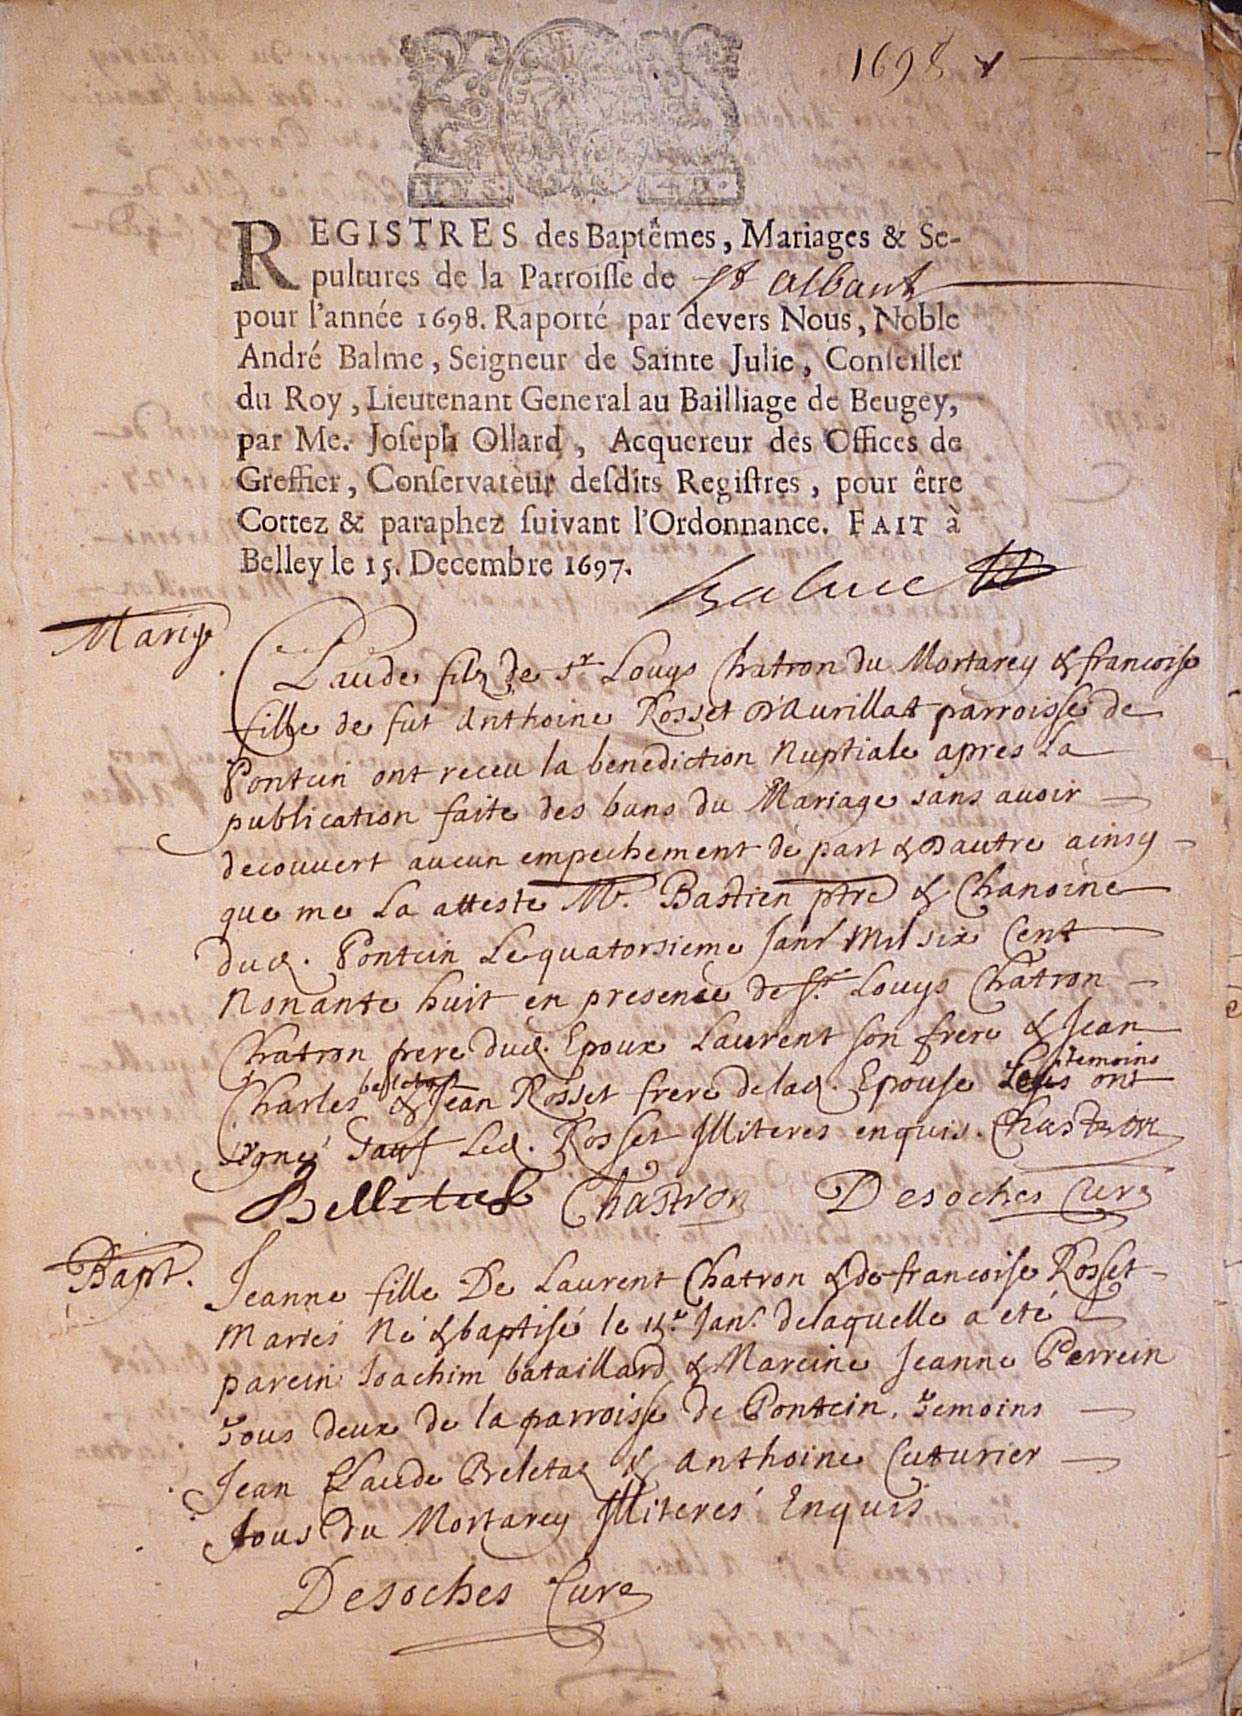 1698
REGISTRES des Baptêmes, Mariages & Se-
pultures de la Parroisse de St Albant
pour l'année 1698. Raporté par devers Nous, Noble
André Balme, Seigneur de Sainte Julie, Conseiller
du Roy, Lieutenant General au Bailliage de Beugey,
par Me. Joseph Ollard, Acquereur des Offices de
Greffier, Conservateur desdits Registres, pour être
Cottez & paraphez suivant l'Ordonnance. FAIT à
Belley le 15. Decembre 1697.
Balme
Mariage
Claude filz de Sr Louys Chatron du Mortarey & francoise
fille de fut Anthoine Rosset D'Aurillat parroisse de
Pontein ont receu la benediction Nuptiale apres La
publication faite des bans du Mariage sans avoir
decouvert aucun empechement de part & Dautre ainsy
que me La atteste Mr. Bastien ptre & Chanoine
dud. Pontein Le quatorsieme Janr Mil six Cent
Nonante huit en presence de Sr. Louys Chatron
Chatron pere dud. Epoux Laurent son frere & Jean
Charles belletas & Jean Rosset frere de lad. Epouse Lesqs temoins ont
signé Sauf Led. Rosset Illiteres enquis. Chastron
Belletas Chastron Desoches Curé
Bapt.
Jeanne fille De Laurent Chatron & de francoise Rosset
Mariés Né & baptisé le Janr. delaquelle a eté
parein Joachim bataillard & Mareine Jeanne Perrein
Tous deux de la parroisse de Pontein. Temoins
Jean Claude Beletas & Anthoine Cuturier
Tous Du Mortarey Illiteres Enquis
Desoches Curé